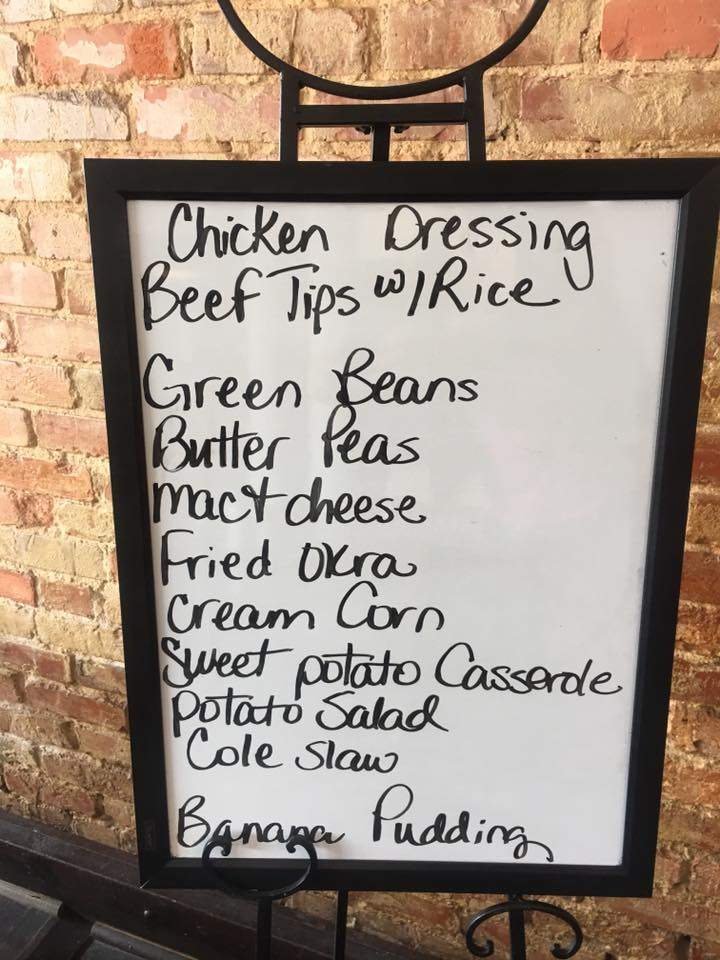 Chicken Dressing
Beef Tips w/Rice
Green Beans
Butter Peas
mac + cheese
Fried Okra
Cream Corn
Sweet potato Casserole
potato Salad
Cole slaw
Banana Pudding